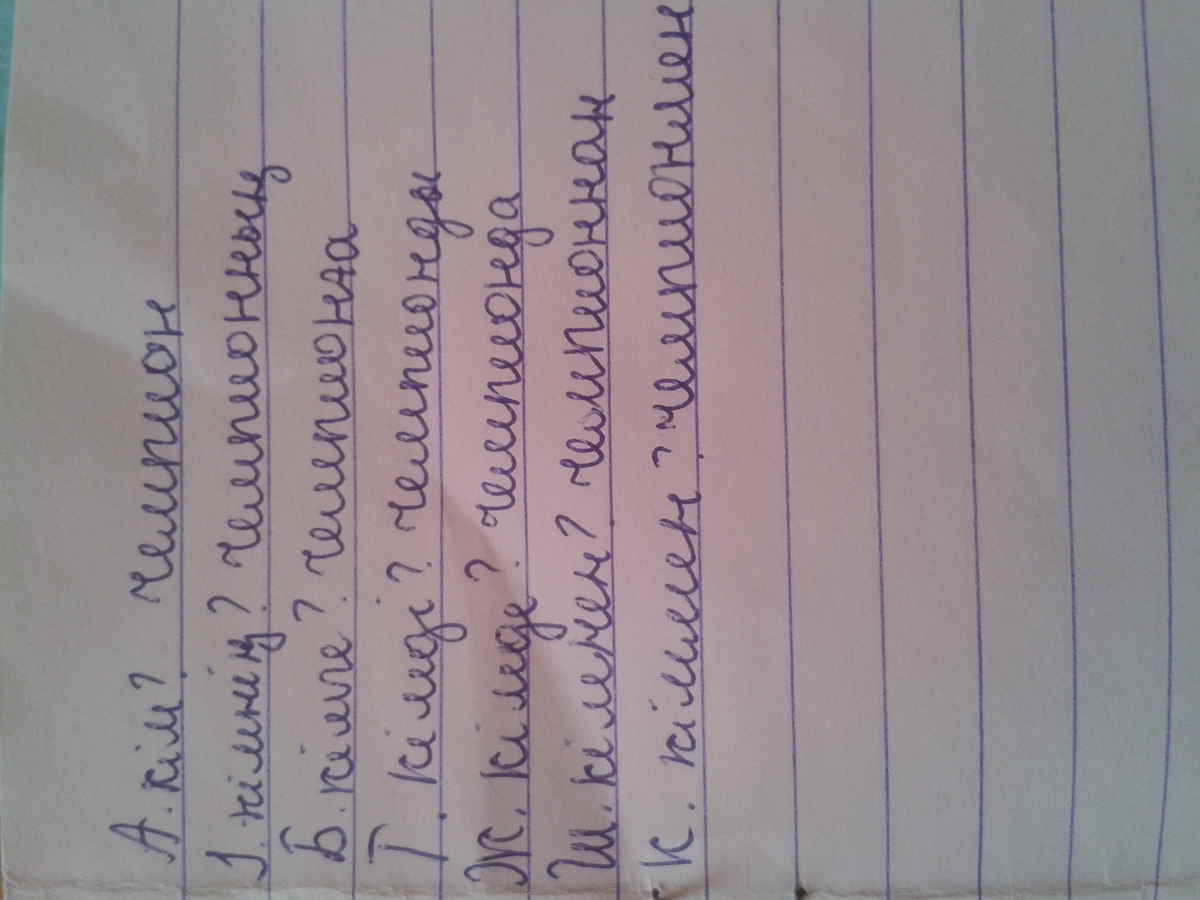 А. кім? Чемпион
І. кімнің? Чемпионның
Б. кімге? Чемпионға
Т. кімді? Чемпионды
Ж. кімде? чемпионда
Ш. кімнен? чемпионнан
К. кіммен? чемпионмен